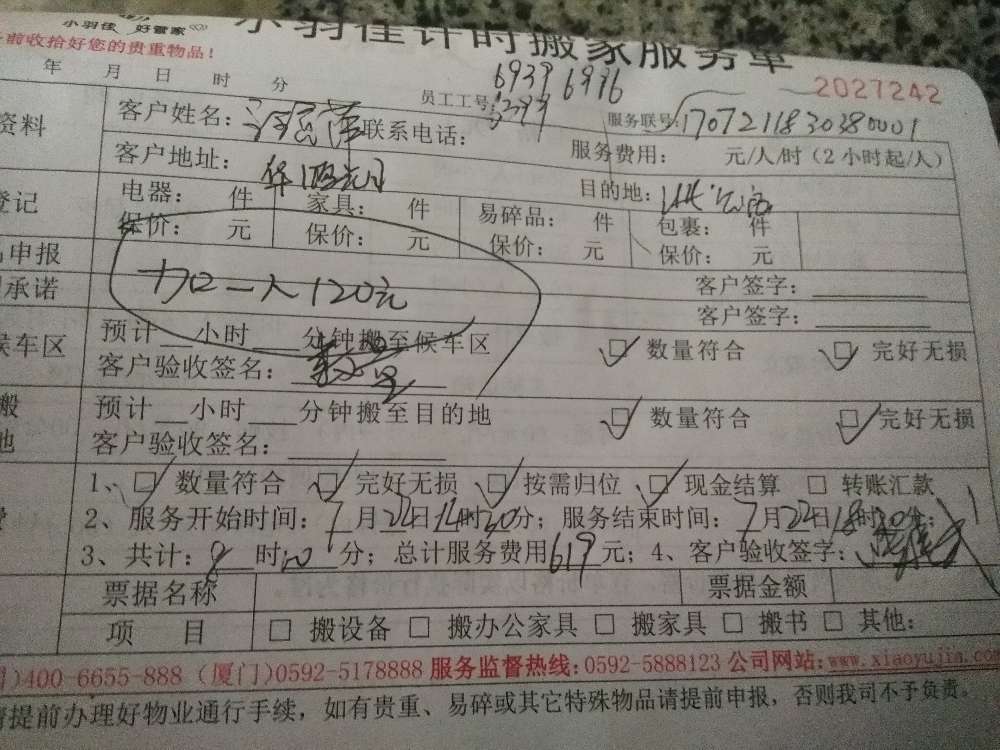 小羽佳 好管家
小羽佳计时搬家服务单
前收拾好您的贵重物品！
2027242
年 月 日 时 分
员工工号： 6939 6996
服务联号：1707211830380001
客户姓名： 联系电话：
服务费用： 元/人/时（2小时起/人）
资料
客户地址：
目的地：
登记
电器： 件 家具： 件 易碎品： 件 包裹： 件
保价： 元 保价： 元 保价： 元 保价： 元
申报
客户签字：
承诺
加一人120元
客户签字：
候车区
预计 小时 分钟搬至候车区
☑ 数量符合 ☑ 完好无损
客户验收签名：
搬
预计 小时 分钟搬至目的地
☑ 数量符合 ☑ 完好无损
地
客户验收签名：
1、☑ 数量符合 ☑ 完好无损 ☑ 按需归位 ☑ 现金结算 □ 转账汇款
2、服务开始时间：7月22日14时30分；服务结束时间：7月22日18时30分；
3、共计：8时 分；总计服务费用619元；4、客户验收签字：
票据名称 票据金额
项 目 □ 搬设备 □ 搬办公家具 □ 搬家具 □ 搬书 □ 其他：
)400-6655-888（厦门)0592-5178888 服务监督热线：0592-5888123 公司网站：www.xiaoyujia.com
请提前办理好物业通行手续，如有贵重、易碎或其它特殊物品请提前申报，否则我司不予负责。